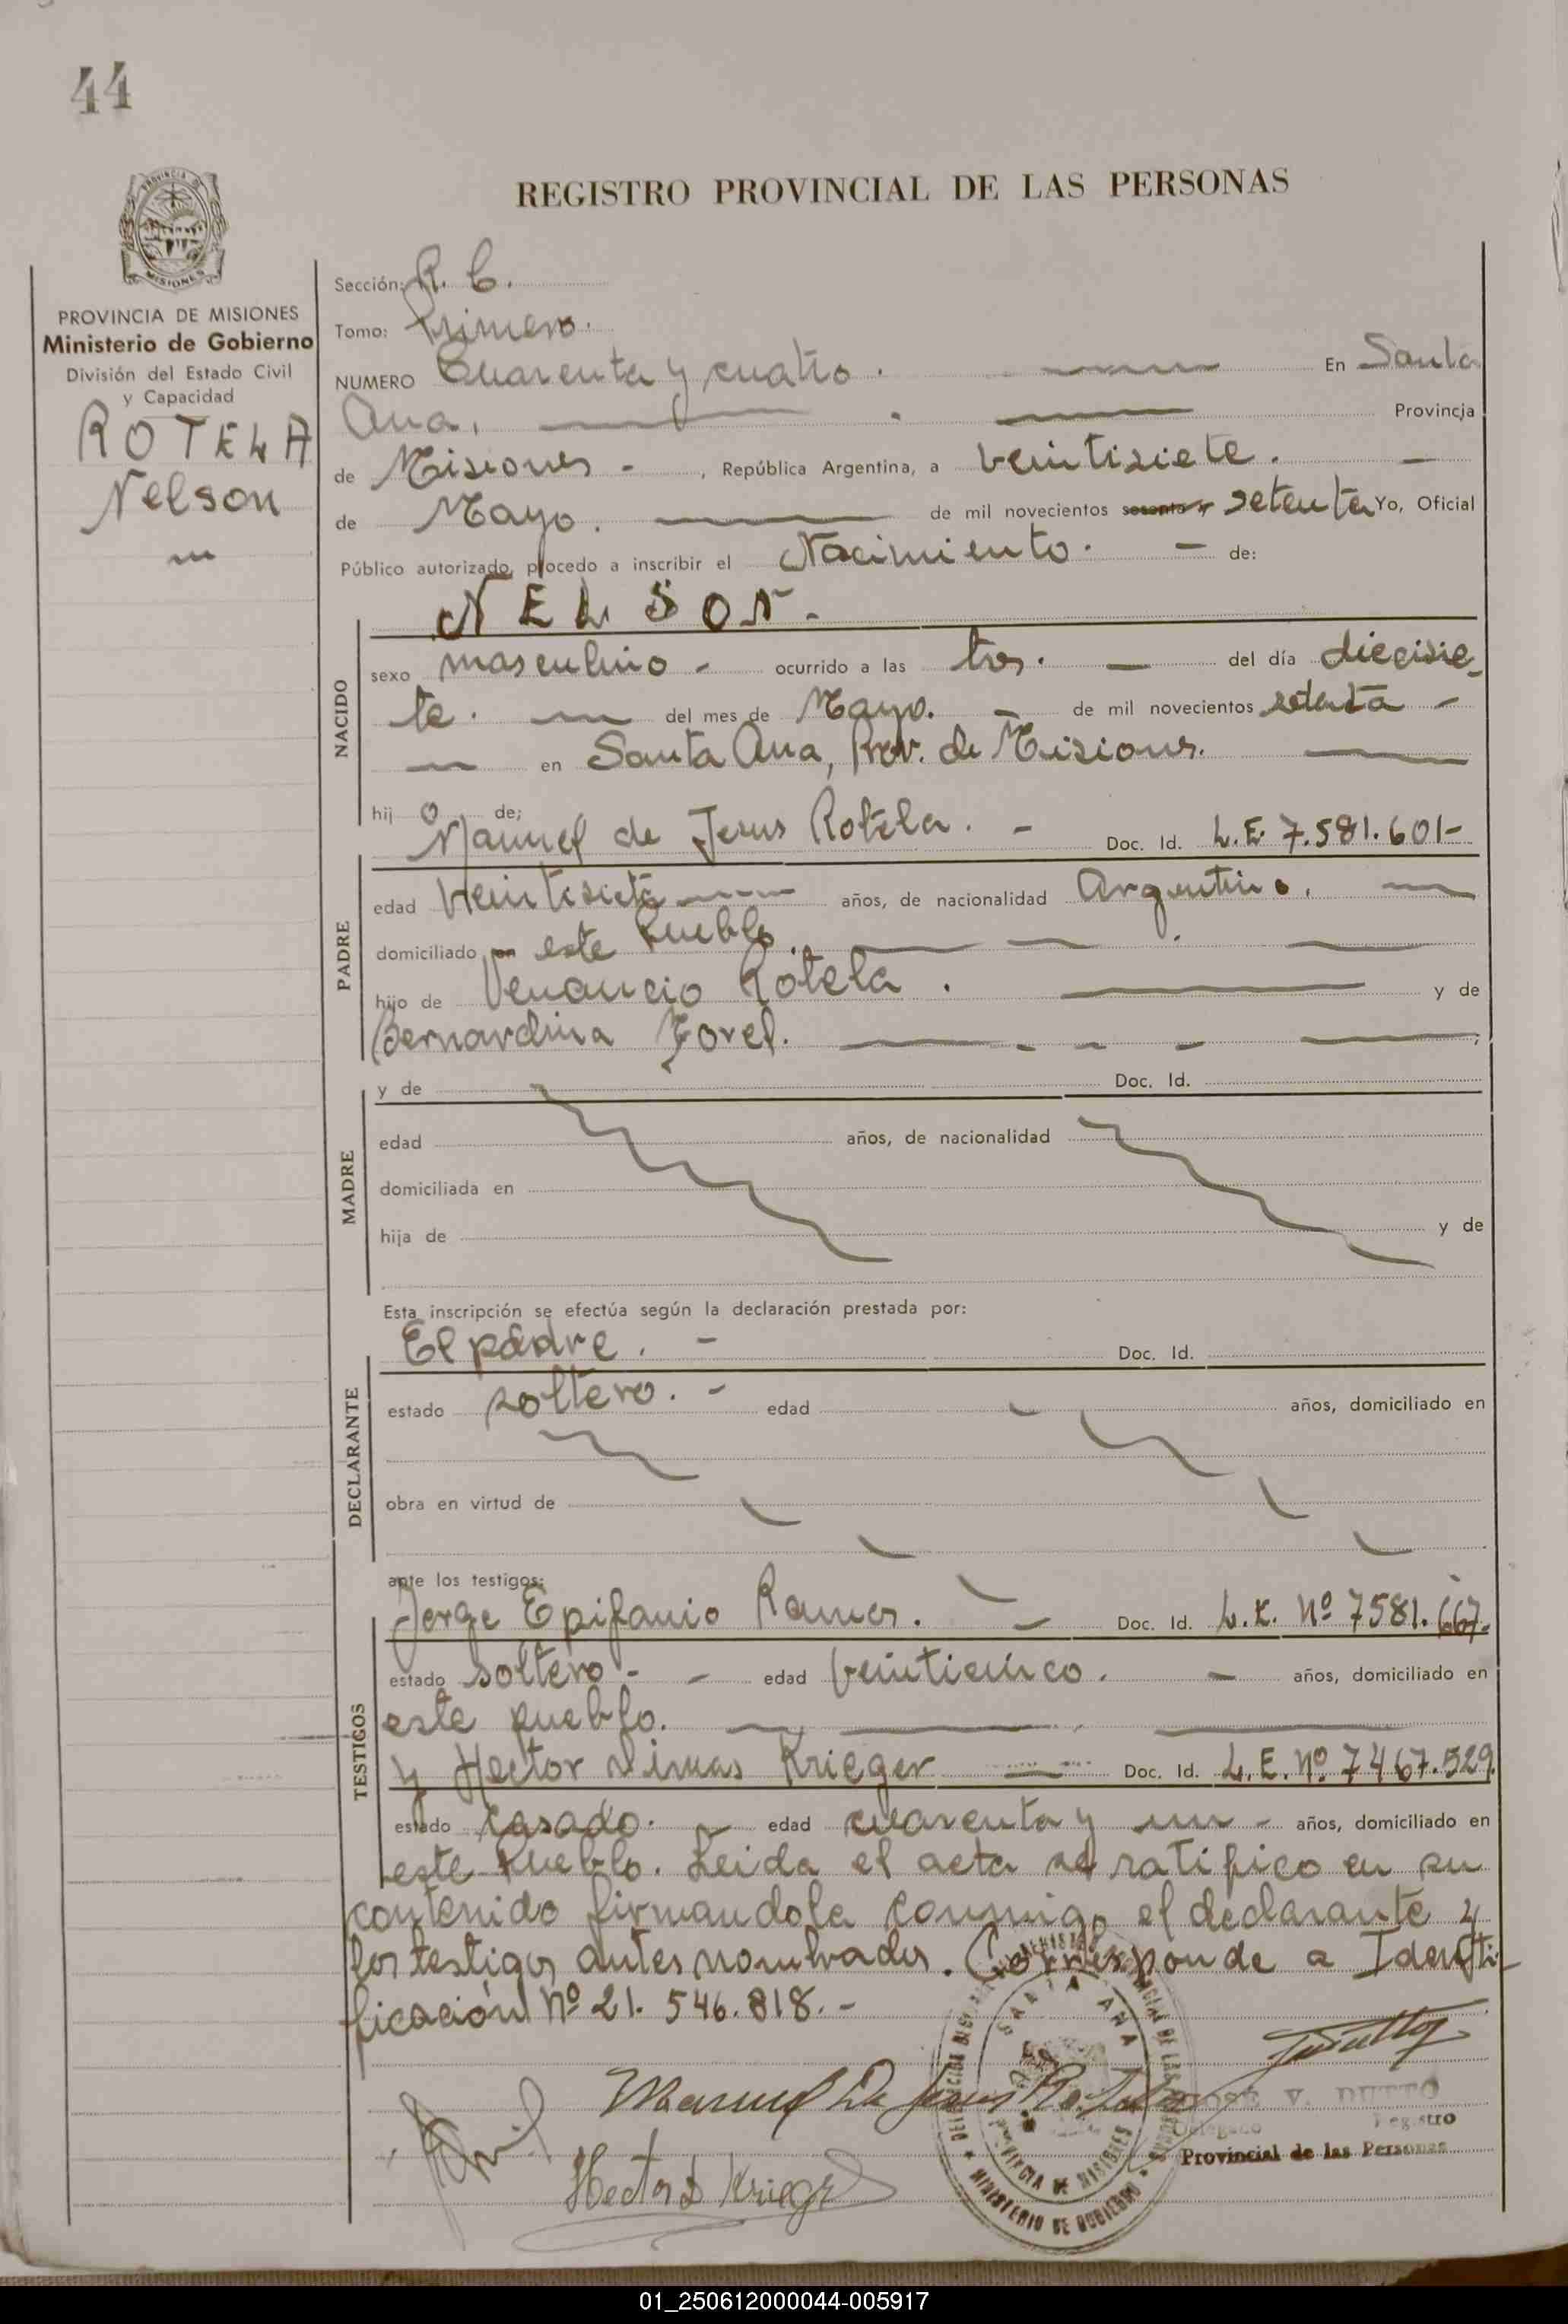 44
PROVINCIA DE MISIONES
PROVINCIA DE MISIONES
Ministerio de Gobierno
División del Estado Civil
y Capacidad
ROTELA
Nelson
REGISTRO PROVINCIAL DE LAS PERSONAS
Sección: R. C.
Tomo: Primero.
NUMERO Cuarenta y cuatro. En Santa
Ana, Provincia
de Misiones - , República Argentina, a veintisiete. -
de Mayo. de mil novecientos sesenta y setenta Yo, Oficial
Público autorizado, procedo a inscribir el Nacimiento. - de:
NELSON. -
NACIDO
sexo masculino - ocurrido a las tres. - del día diecisie-
te. del mes de Mayo. - de mil novecientos setenta -
en Santa Ana, Prov. de Misiones.
hij o de;
Manuel de Jesus Rotela. - Doc. Id. L.E. 7.581.601-
PADRE
edad veintisiete años, de nacionalidad Argentino.
domiciliado en este Pueblo.
hijo de Venancio Rotela. y de
Bernardina
MADRE
y de Doc. Id.
edad años, de nacionalidad
domiciliada en
hija de y de
Esta inscripción se efectúa según la declaración prestada por:
El padre. - Doc. Id.
DECLARANTE
estado soltero. - edad años, domiciliado en
obra en virtud de
ante los testigos:
Jorge Epifanio Ramos. Doc. Id. L.E. Nº 7581.667.
TESTIGOS
estado soltero - - edad veinticinco. - años, domiciliado en
este pueblo.
y Hector Dimas Krieger Doc. Id. L.E. Nº 7467.529.
estado casado. edad cuarenta y un - años, domiciliado en
este Pueblo. Leida el acta se ratifico en su
contenido firmandola conmigo el declarante y
los testigos antes nombrados. Corresponde a Identi-
ficación Nº 21.546.818. -
Manuel De Jesus Rotela
Hector D Krieger
SANTA ANA
PROVINCIA DE MISIONES
MINISTERIO DE GOBIERNO
JOSE V. DUTTO
Delegado Registro
Provincial de las Personas
01_250612000044-005917